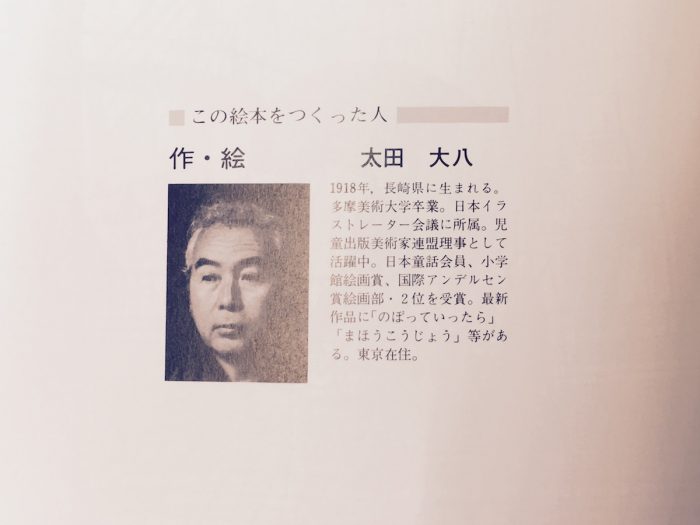 この絵本をつくった人
作・絵
太田 大八
1918年，長崎県に生まれる。
多摩美術大学卒業。日本イラ
ストレーター会議に所属。児
童出版美術家連盟理事として
活躍中。日本童話会員、小学
館絵画賞、国際アンデルセン
賞絵画部・２位を受賞。最新
作品に「のぼっていったら」
「まほうこうじょう」等があ
る。東京在住。